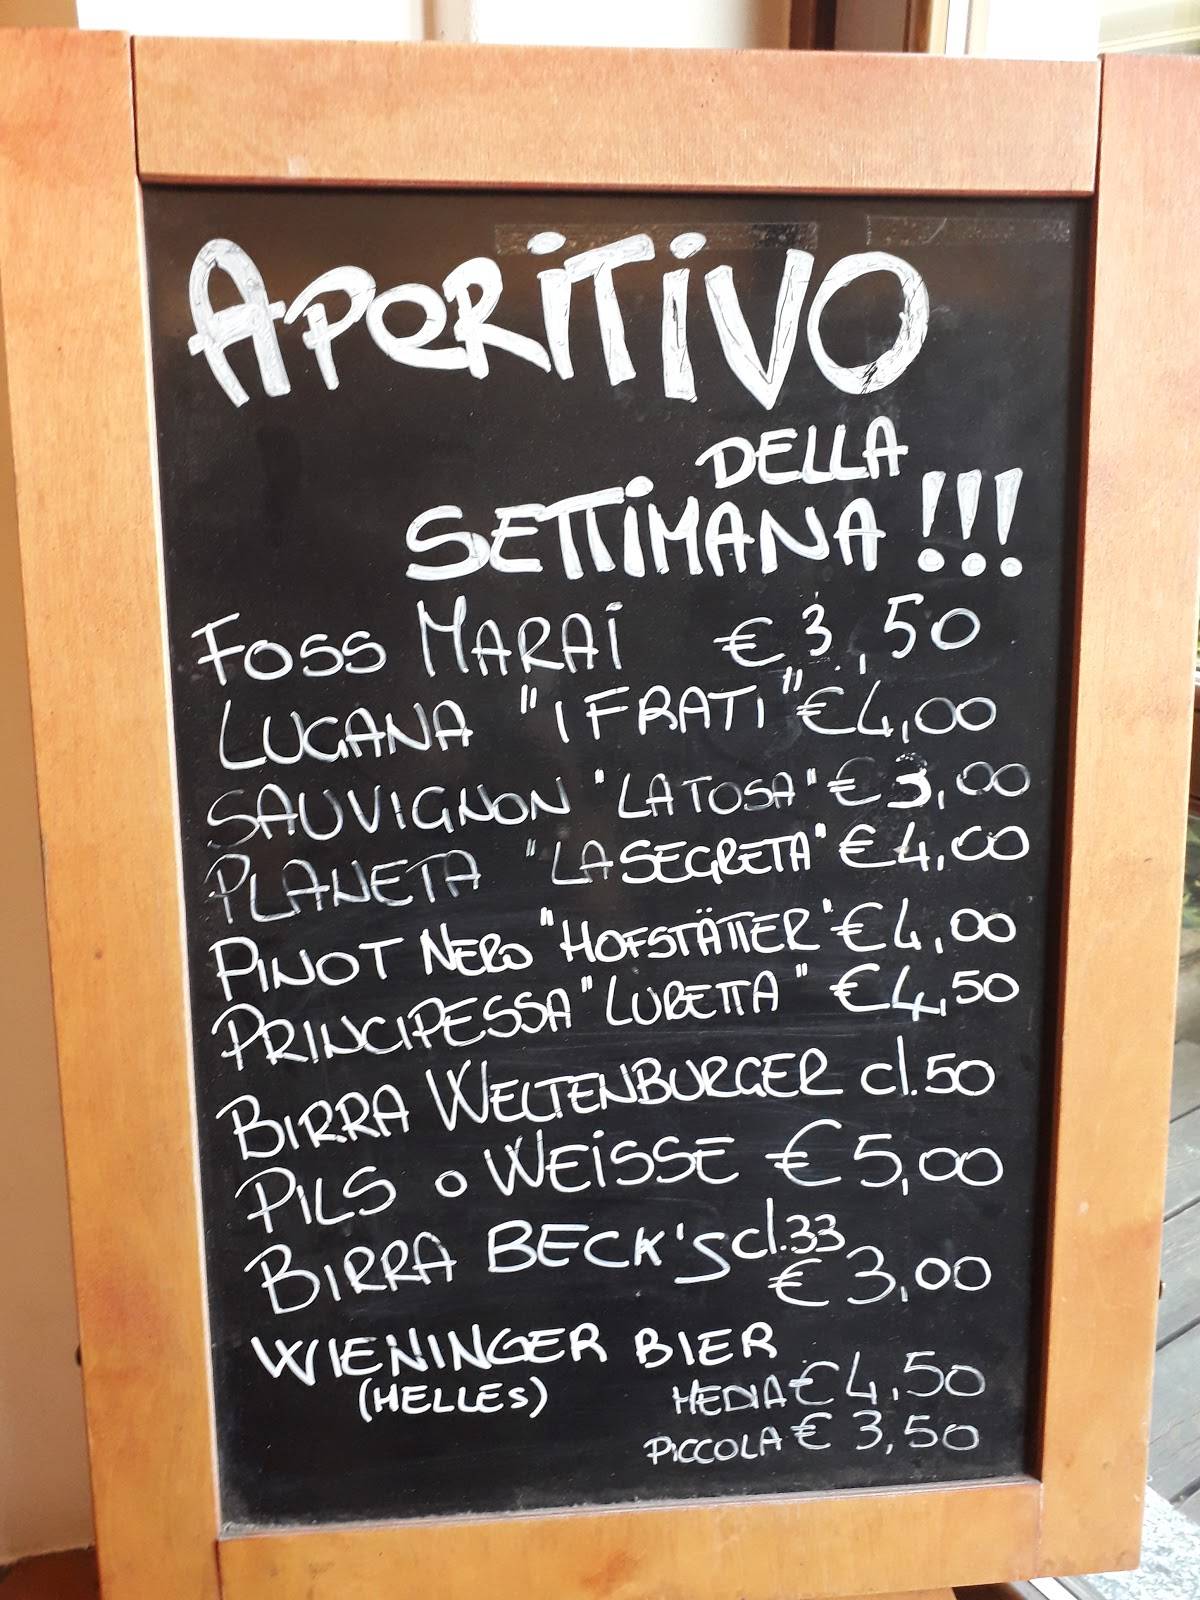 APERITIVO
DELLA
SETTIMANA!!!
FOSS MARAI € 3,50
LUGANA "I FRATI" € 4,00
SAUVIGNON "LA TOSA" € 3,00
PLANETA "LA SEGRETA" € 4,00
PINOT NERO "HOFSTÄTTER" € 4,00
PRINCIPESSA "LURETTA" € 4,50
BIRRA WELTENBURGER cl.50
PILS o WEISSE € 5,00
BIRRA BECK'S cl.33
€ 3,00
WIENINGER BIER
(HELLES) MEDIA € 4,50
PICCOLA € 3,50